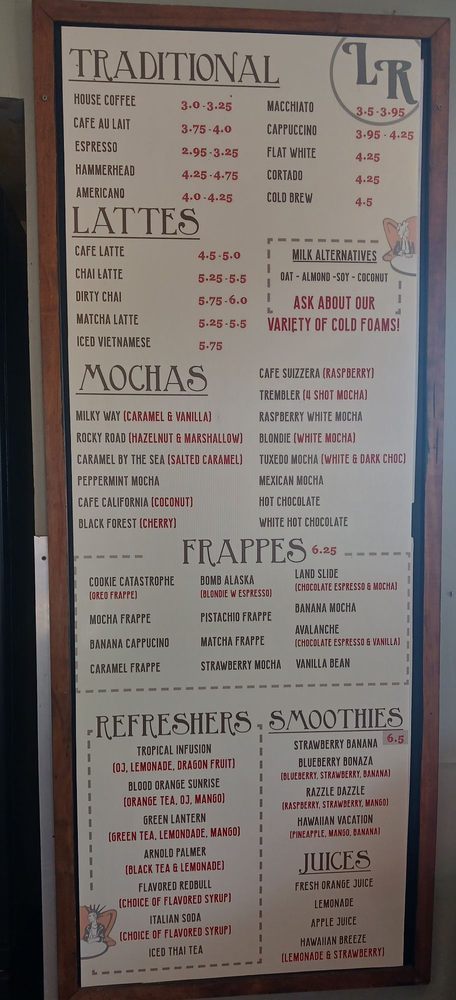 LR
TRADITIONAL
HOUSE COFFEE 3.0-3.25
CAFE AU LAIT 3.75-4.0
ESPRESSO 2.95-3.25
HAMMERHEAD 4.25-4.75
AMERICANO 4.0-4.25
MACCHIATO 3.5-3.95
CAPPUCCINO 3.95-4.25
FLAT WHITE 4.25
CORTADO 4.25
COLD BREW 4.5
LATTES
CAFE LATTE 4.5-5.0
CHAI LATTE 5.25-5.5
DIRTY CHAI 5.75-6.0
MATCHA LATTE 5.25-5.5
ICED VIETNAMESE 5.75
MILK ALTERNATIVES
OAT - ALMOND -SOY - COCONUT
ASK ABOUT OUR
VARIETY OF COLD FOAMS!
MOCHAS
MILKY WAY (CARAMEL & VANILLA)
ROCKY ROAD (HAZELNUT & MARSHALLOW)
CARAMEL BY THE SEA (SALTED CARAMEL)
PEPPERMINT MOCHA
CAFE CALIFORNIA (COCONUT)
BLACK FOREST (CHERRY)
CAFE SUIZZERA (RASPBERRY)
TREMBLER (4 SHOT MOCHA)
RASPBERRY WHITE MOCHA
BLONDIE (WHITE MOCHA)
TUXEDO MOCHA (WHITE & DARK CHOC)
MEXICAN MOCHA
HOT CHOCOLATE
WHITE HOT CHOCOLATE
FRAPPES 6.25
COOKIE CATASTROPHE
(OREO FRAPPE)
MOCHA FRAPPE
BANANA CAPPUCINO
CARAMEL FRAPPE
BOMB ALASKA
(BLONDIE W ESPRESSO)
PISTACHIO FRAPPE
MATCHA FRAPPE
STRAWBERRY MOCHA
LAND SLIDE
(CHOCOLATE ESPRESSO & MOCHA)
BANANA MOCHA
AVALANCHE
(CHOCOLATE ESPRESSO & VANILLA)
VANILLA BEAN
REFRESHERS
TROPICAL INFUSION
(OJ, LEMONADE, DRAGON FRUIT)
BLOOD ORANGE SUNRISE
(ORANGE TEA, OJ, MANGO)
GREEN LANTERN
(GREEN TEA, LEMONDADE, MANGO)
ARNOLD PALMER
(BLACK TEA & LEMONADE)
FLAVORED REDBULL
(CHOICE OF FLAVORED SYRUP)
ITALIAN SODA
(CHOICE OF FLAVORED SYRUP)
ICED THAI TEA
SMOOTHIES
6.5
STRAWBERRY BANANA
BLUEBERRY BONAZA
(BLUEBERRY, STRAWBERRY, BANANA)
RAZZLE DAZZLE
(RASPBERRY, STRAWBERRY, MANGO)
HAWAIIAN VACATION
(PINEAPPLE, MANGO, BANANA)
JUICES
FRESH ORANGE JUICE
LEMONADE
APPLE JUICE
HAWAIIAN BREEZE
(LEMONADE & STRAWBERRY)